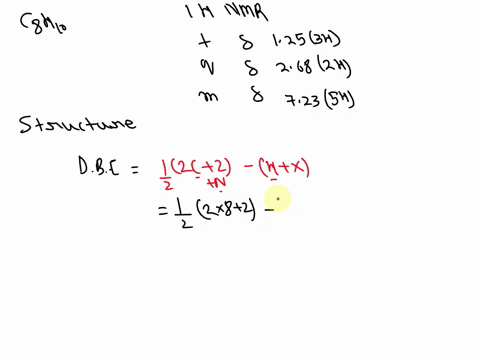 C8H10
1H NMR
t δ 1.25(3H)
q δ 2.68(2H)
m δ 7.23(5H)
Structure
D.B.E = 1/2 (2C+2) - (H+X)
+N
= 1/2 (2×8+2) -